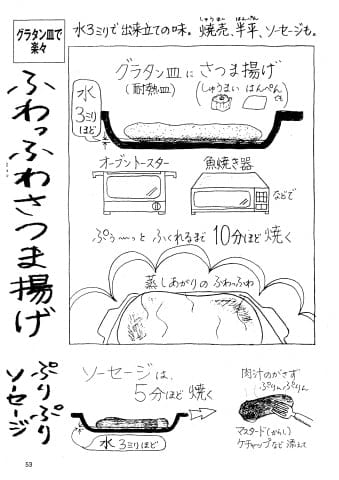 グラタン皿で
楽々
水3ミリで出来立ての味。焼売、半平、ソーセージも。
しゅうまい
はんぺん
ふわっふわさつま揚げ
グラタン皿にさつま揚げ
(耐熱皿)
(しゅうまい はんぺん
でも)
水
3ミリ
ほど
オーブントースター
魚焼き器
などで
ぷぅ〜っと ふくれるまで 10分ほど焼く
蒸しあがりの ふわっふわ
ぷりぷり
ソーセージ
ソーセージは、
5分ほど焼く
水3ミリほど
肉汁のがさず
ぷりんぷりん
マスタード(からし)
ケチャップなど 添えて
53